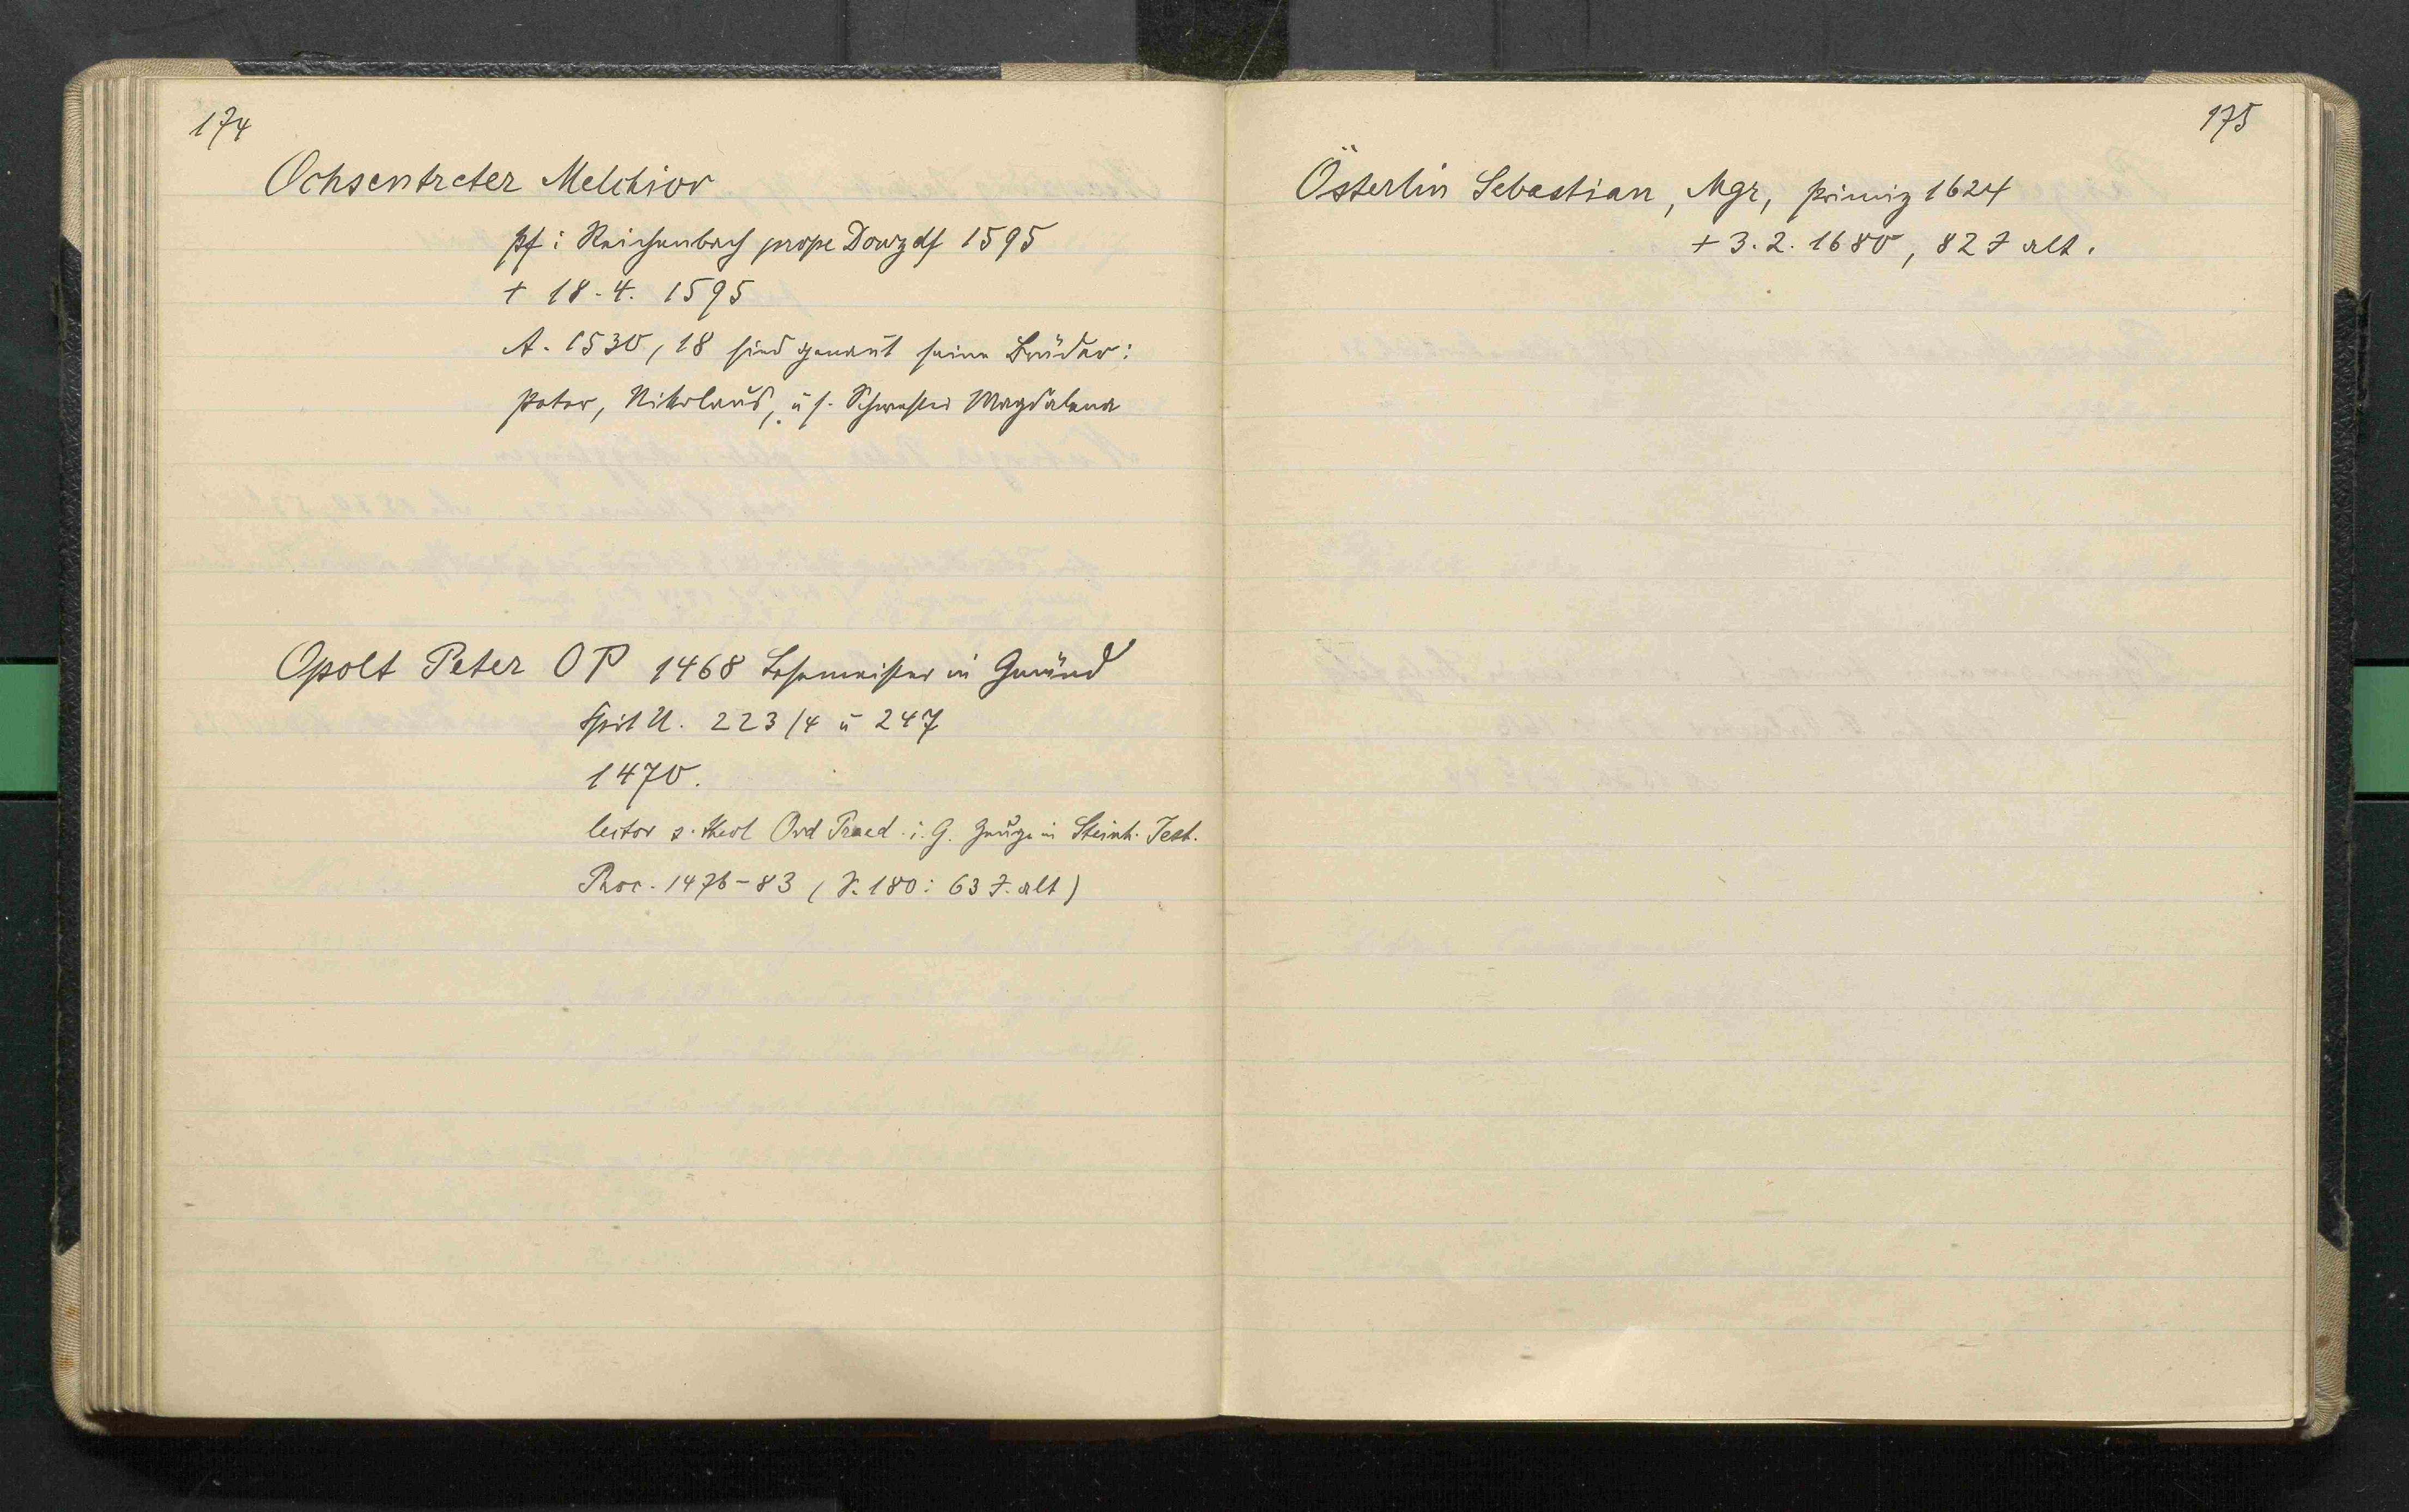 174
Ochsentreter Melchior
Pf i Reichenbach prope Donzdf 1595
+ 18.4. 1595
A. 1530, 18 sind genant seine Brüder:
Peter, Nikolaus, u s. Schwester Magdalena
Opolt Peter OP 1468 Lesemeister in Gmünd
Spit U. 223/4 u 247
1470.
lector s. theol Ord Praed. i. G. Zeuge in Steinh. Test.
Proc. 1476-83 (S. 180: 63 J. alt)
175
Österlin Sebastian, Mgr, Primiz 1624
+ 3.2. 1680, 82 J alt.